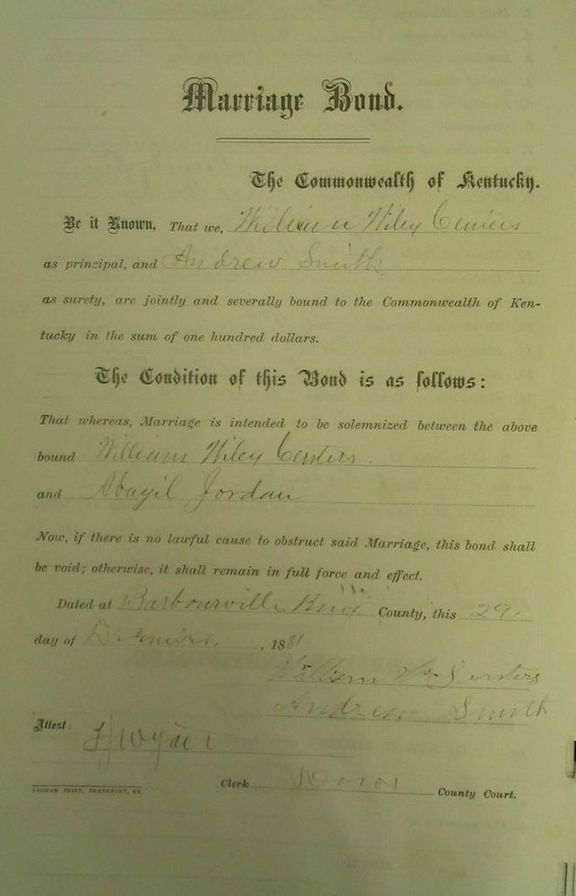 Marriage Bond.
The Commonwealth of Kentucky.
Be it Known, That we, William Wiley Centers
as principal, and Andrew Smith
as surety, are jointly and severally bound to the Commonwealth of Ken-
tucky in the sum of one hundred dollars.
The Condition of this Bond is as follows:
That whereas, Marriage is intended to be solemnized between the above
bound William Wiley Centers.
and Abagil Jordan
Now, if there is no lawful cause to obstruct said Marriage, this bond shall
be void; otherwise, it shall remain in full force and effect.
Dated at Barbourville Knox County, this 29
day of December, 1881
William Centers
Andrew Smith
Attest:
Clerk Knox County Court.